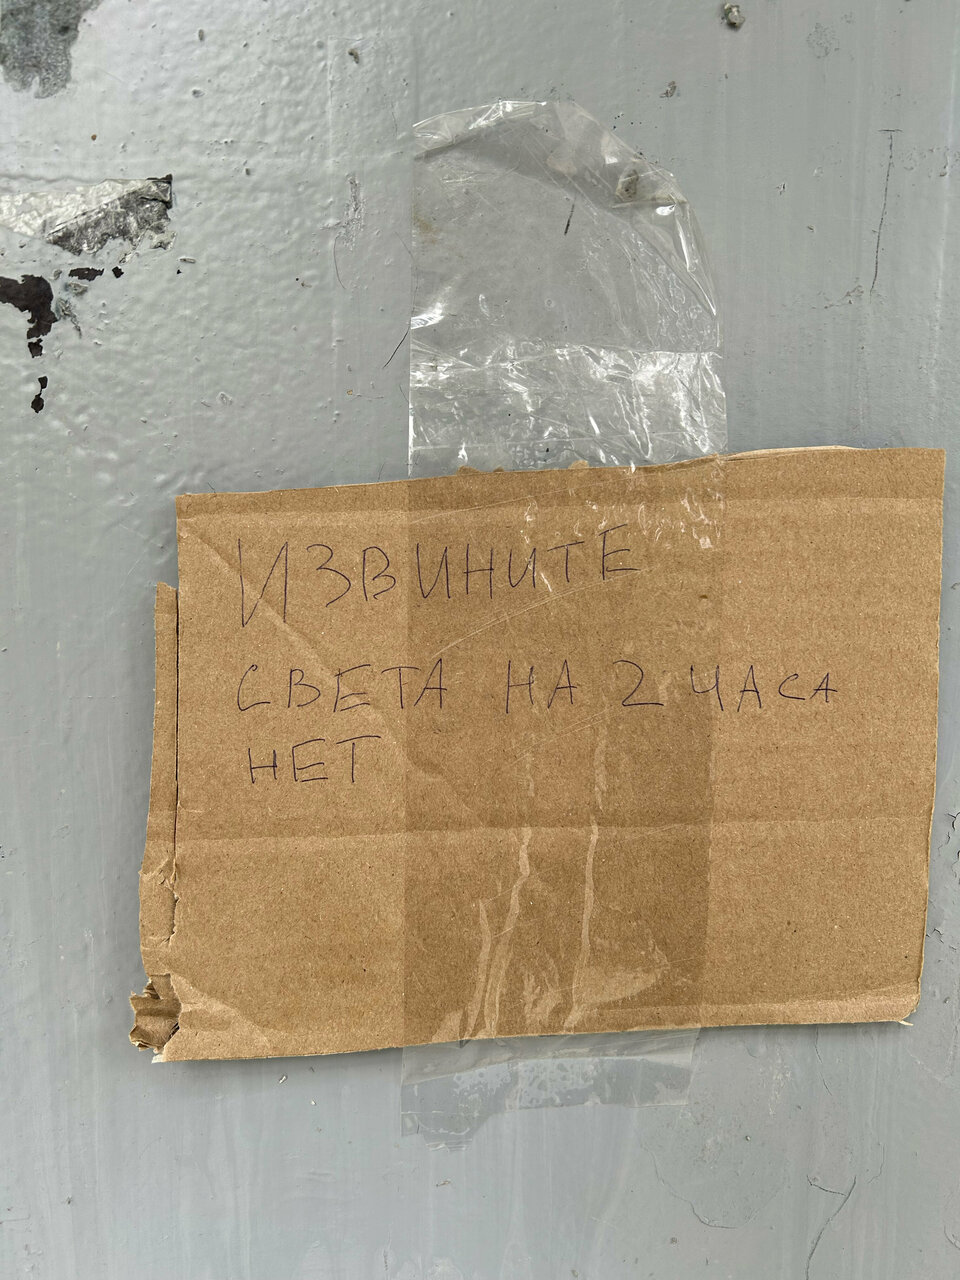 ИЗВИНИТЕ
СВЕТА НА 2 ЧАСА
НЕТ